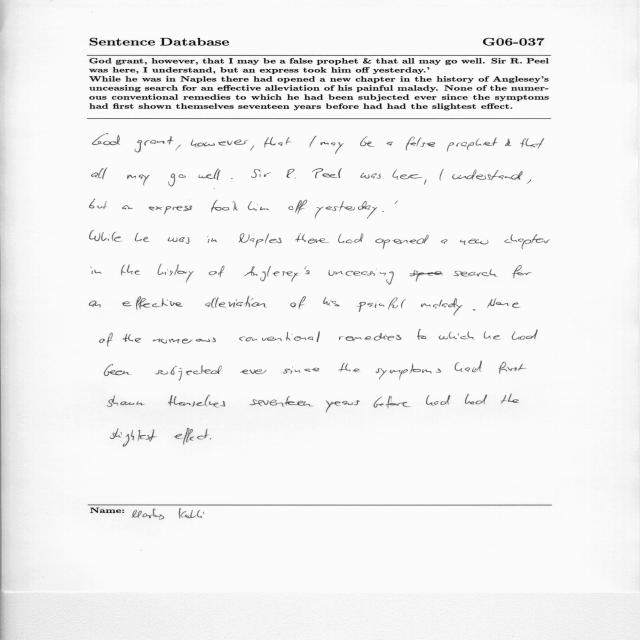 Sentence Database G06-037
God grant, however, that I may be a false prophet & that all may go well. Sir R. Peel
was here, I understand, but an express took him off yesterday.'
While he was in Naples there had opened a new chapter in the history of Anglesey's
unceasing search for an effective alleviation of his painful malady. None of the numer-
ous conventional remedies to which he had been subjected ever since the symptoms
had first shown themselves seventeen years before had had the slightest effect.
God grant, however, that I may be a false prophet & that
all may go well. Sir R. Peel was here, I understand,
but an express took him off yesterday.'
While he was in Naples there had opened a new chapter
in the history of Anglesey's unceasing search for
an effective alleviation of his painful malady. None
of the numerous conventional remedies to which he had
been subjected ever since the symptoms had first
shown themselves seventeen years before had had the
slightest effect.
Name: